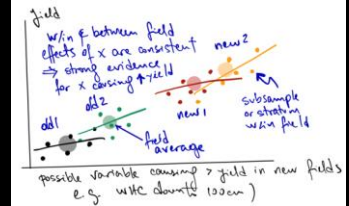 yield
w/in & between field
effects of x are consistent
⇒ strong evidence
for x causing ↑ yield
new 2
old 2
old 1
new 1
field
average
subsample
or stratum
w/in field
possible variable causing > yield in new fields
e.g. WHC down to 100cm)